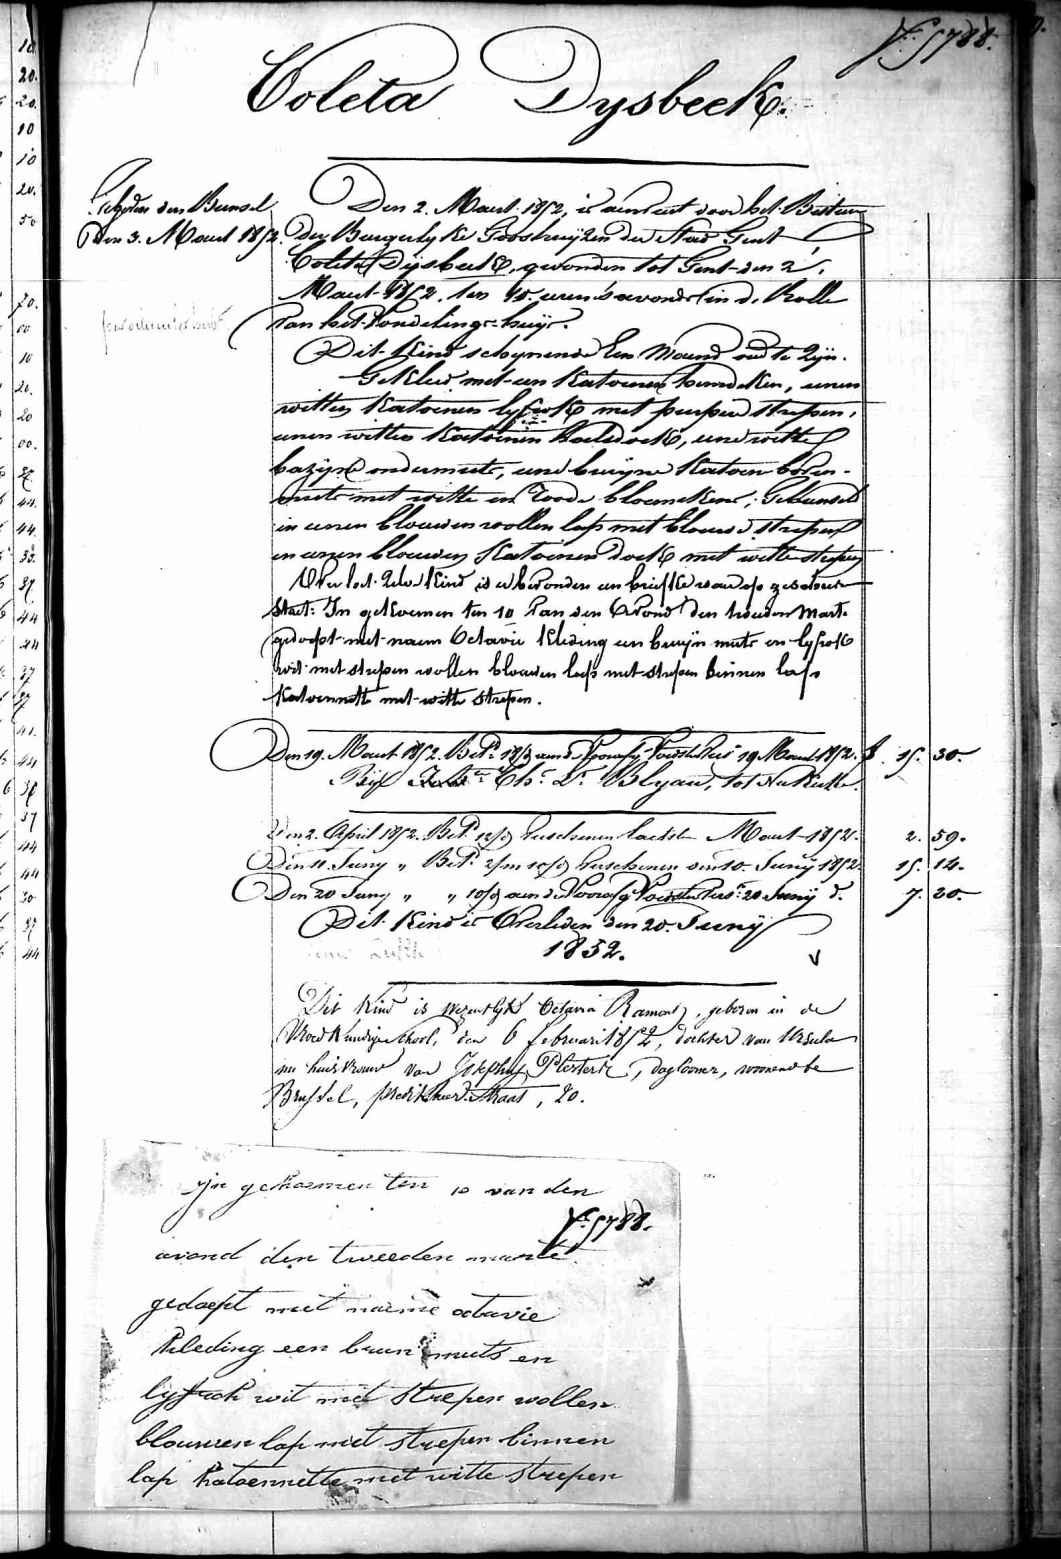 N.º 5788.
Coleta Dysbeek.
Scheden den Bunsel
Den 3. Maart 1852.
Den 2. Maart 1852, is aenveert door het Bestuur
der Burgerlyke Godshuyzen der Stad Gent
Coleta Dysbeek, gevonden tot Gent den 2.
Maart 1852. ten 10. uren 's avonds in de Rolle
van het Vondelings-huys.
Dit Kind schynende Een Maend oud te Zyn.
Gekleed met een Katoenen hemdeken, eenen
witten Katoenen lyfrok met purper strepen,
eenen witten Katoenen halsdoek, eene witte
bazyne ondermuts, eene bruyne Katoen boven-
muts met witte en Roode bloemekens; Gebunseld
in eenen blauwen wollen lap met blauwe strepen
en eenen blauwen Katoenen doek met witte strepen
Op het Zelve Kind is er bevonden een briefke waer op geschreven
Staet: In gekoemen ten 10 van den Avond den tweeden Marte
gedoopt met naem Octavie Kleding een bruyn muts en lyfrok
wit met strepen wollen blouwen lap met strepen binnen lap
Katoennette met witte strepen.
Den 19. Maart 1852. Bet.d 18/9 aen de Voorsz. Voedsters 19 Maart 1852. f. 15. 30.
By Ch.s L.s Blyau, tot Nukerke.
Den 2. April 1852. Bet.d 12/9 Verschenen laetste Maart 1852. 2. 59.
Den 11. Juny " Bet.d 2/m 10/9 Verschenen den 10. Juny 1852. 15. 14.
Den 20 Juny " " 10/9 aen de Voorsz. Voedsters 20 Juny d. 7. 20.
Dit Kind is Overleden den 20. Juny
1852.
V
Dit Kind is wezentlyk Octavia Ramont, geboren in de
Vroedkundige school, den 6 februari 1852, dochter van Ursula
nu huisvrouw van Josephus, daglooner, woonende
Brussel, predikheerstraat, 20.
yn gekoemen ten 10 van den
N.º 5788.
avond den tweeden marte
gedoept met naeme octavie
kleding een bruin muts en
lyfrok wit met strepen wollen
blouwen lap met strepen binnen
lap katoennette met witte strepen